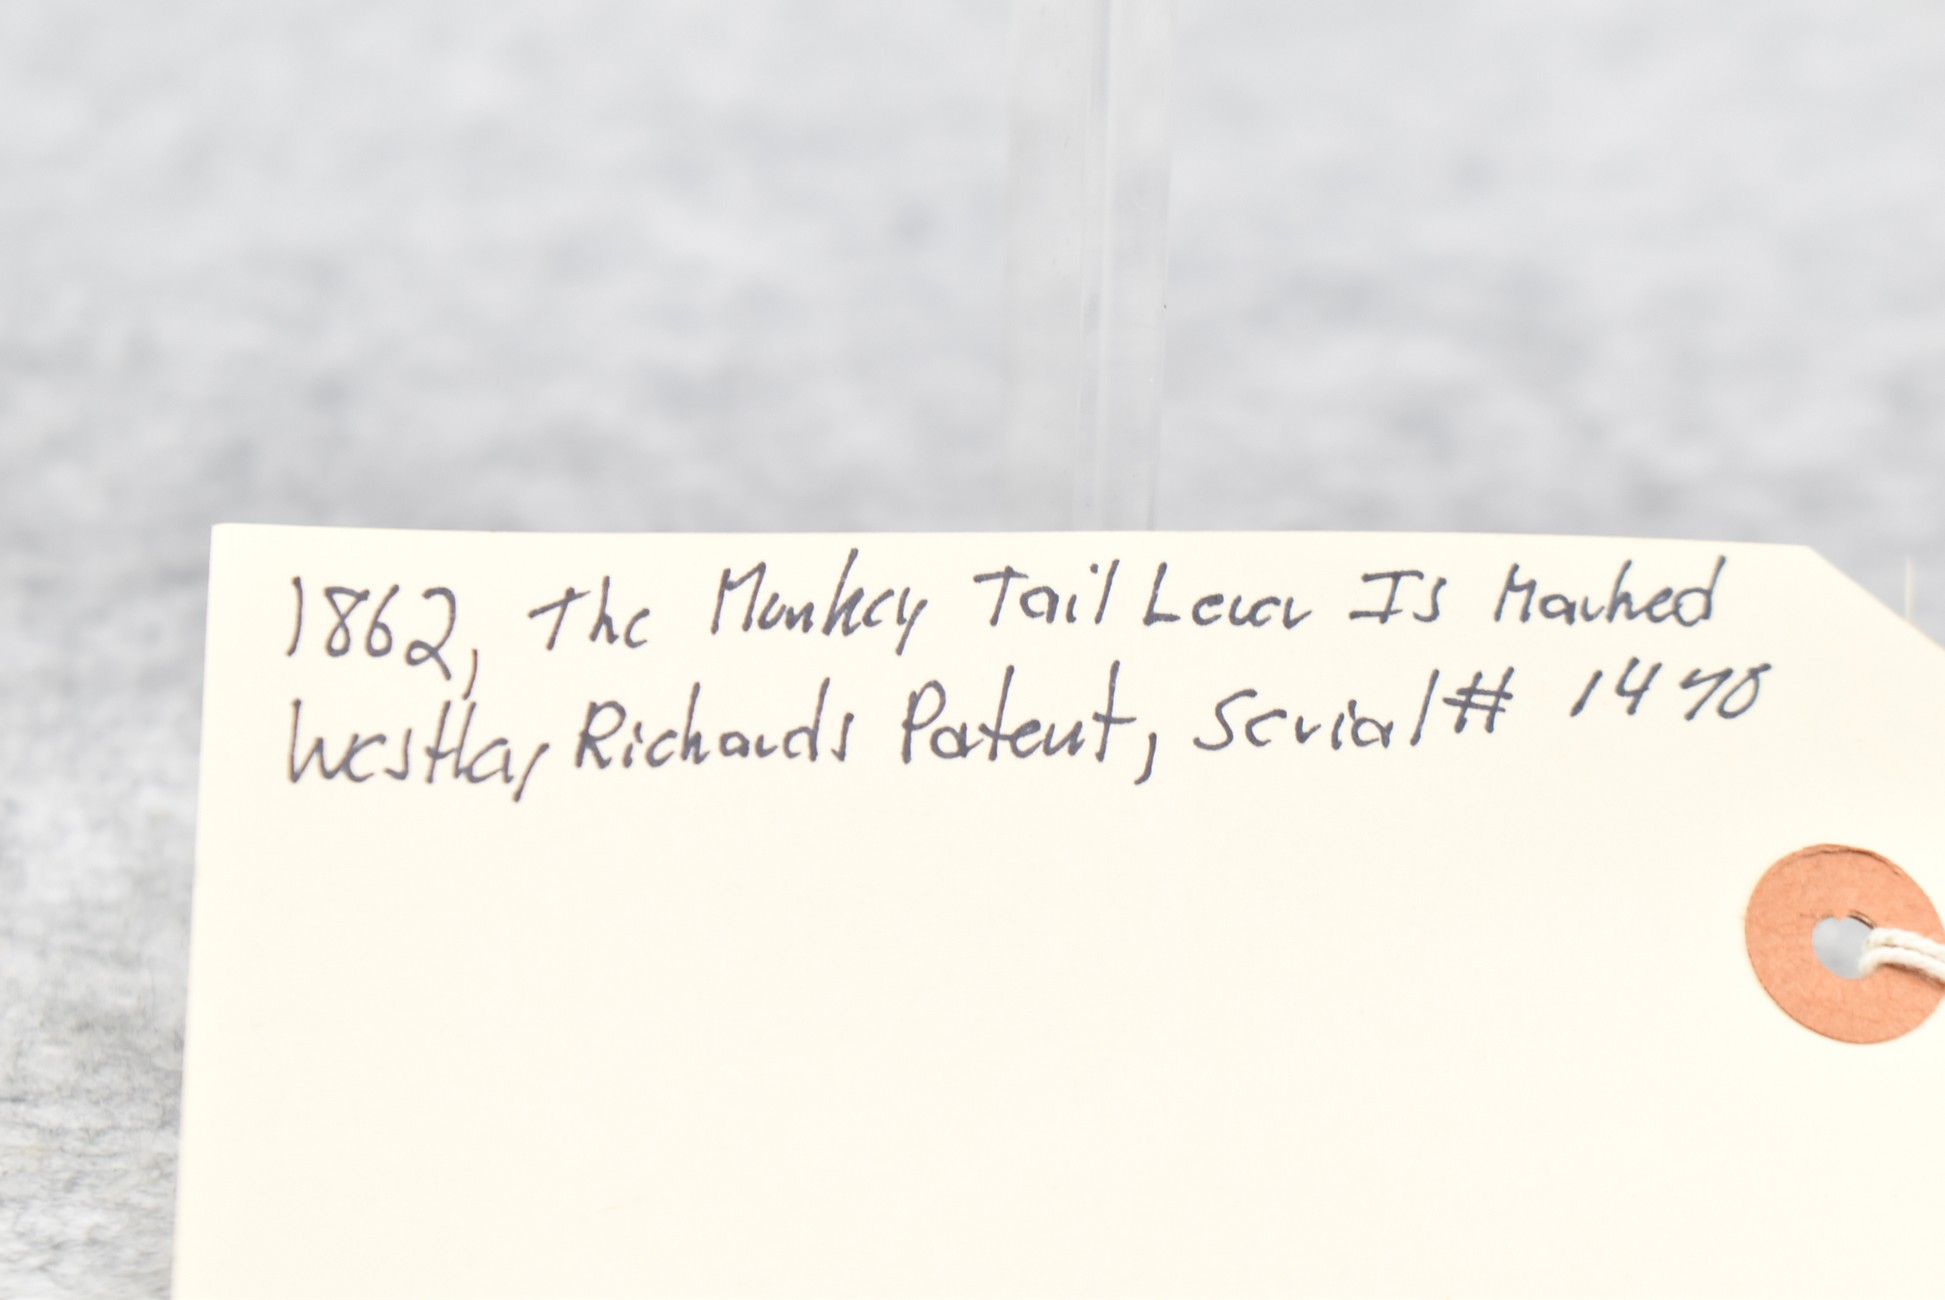 1862, The Monkey Tail Lever Is Marked
Westlay Richards Patent, Serial # 1470